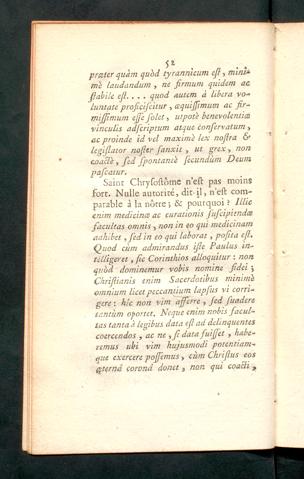 52
præter quàm quòd tyrannicum est, mini-
mè laudandum, ne firmum quidem ac
stabile est.... quod autem à libera vo-
luntate proficiscitur, æquissimum ac fir-
missimum esse solet, utpotè benevolentiæ
vinculis adscriptum atque conservatum,
ac proinde id vel maximè lex nostra &
legislator noster sanxit, ut grex, non
coactè, sed spontanee secundùm Deum
pascatur.
Saint Chrysostôme n'est pas moins
fort. Nulle autorité, dit-il, n'est com-
parable à la nôtre; & pourquoi? Illic
enim medicinæ ac curationis suscipiendæ
facultas omnis, non in eo qui medicinam
adhibet, sed in eo qui laborat, posita est.
Quod cùm admirandus iste Paulus in-
telligeret, sic Corinthios alloquitur: non
quòd dominemur vobis nomine fidei;
Christianis enim Sacerdotibus minimè
omnium licet peccantium lapsus vi corri-
gere: hîc non vim afferre, sed suadere
tantùm oportet. Neque enim nobis facul-
tas tanta à legibus data est ad delinquentes
coercendos, ac ne, si data fuisset, habe-
remus ubi vim hujusmodi potentiam-
que exercere possemus, cùm Christus eos
æternâ coronâ donet, non qui coacti,